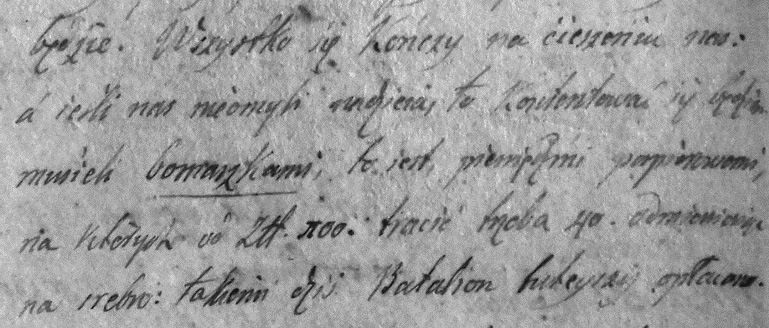 będzie. Wszystko się Kończy na cieszeniu nas:
á ieśli nas nieomyli nadzieia, to Kontentować się będziem
musieli bomaszkami, to iest, pieniędzmi papierowemi,
na Których od Ztł. 100. tracić trzeba 40. odmieniaiąc
na srebro: takiemi dziś Batalion tuteyszy opłacono.